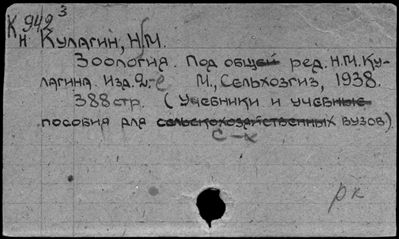 К 949 3
н Кулагин, Н.М.
Зоология. Под общей ред. Н.М. Ку-
лагина. Изд. 2-е М., Сельхозгиз, 1938.
388 стр. (Учебники и учебные
пособия для сельскохозяйственных вузов)
с-х
рк